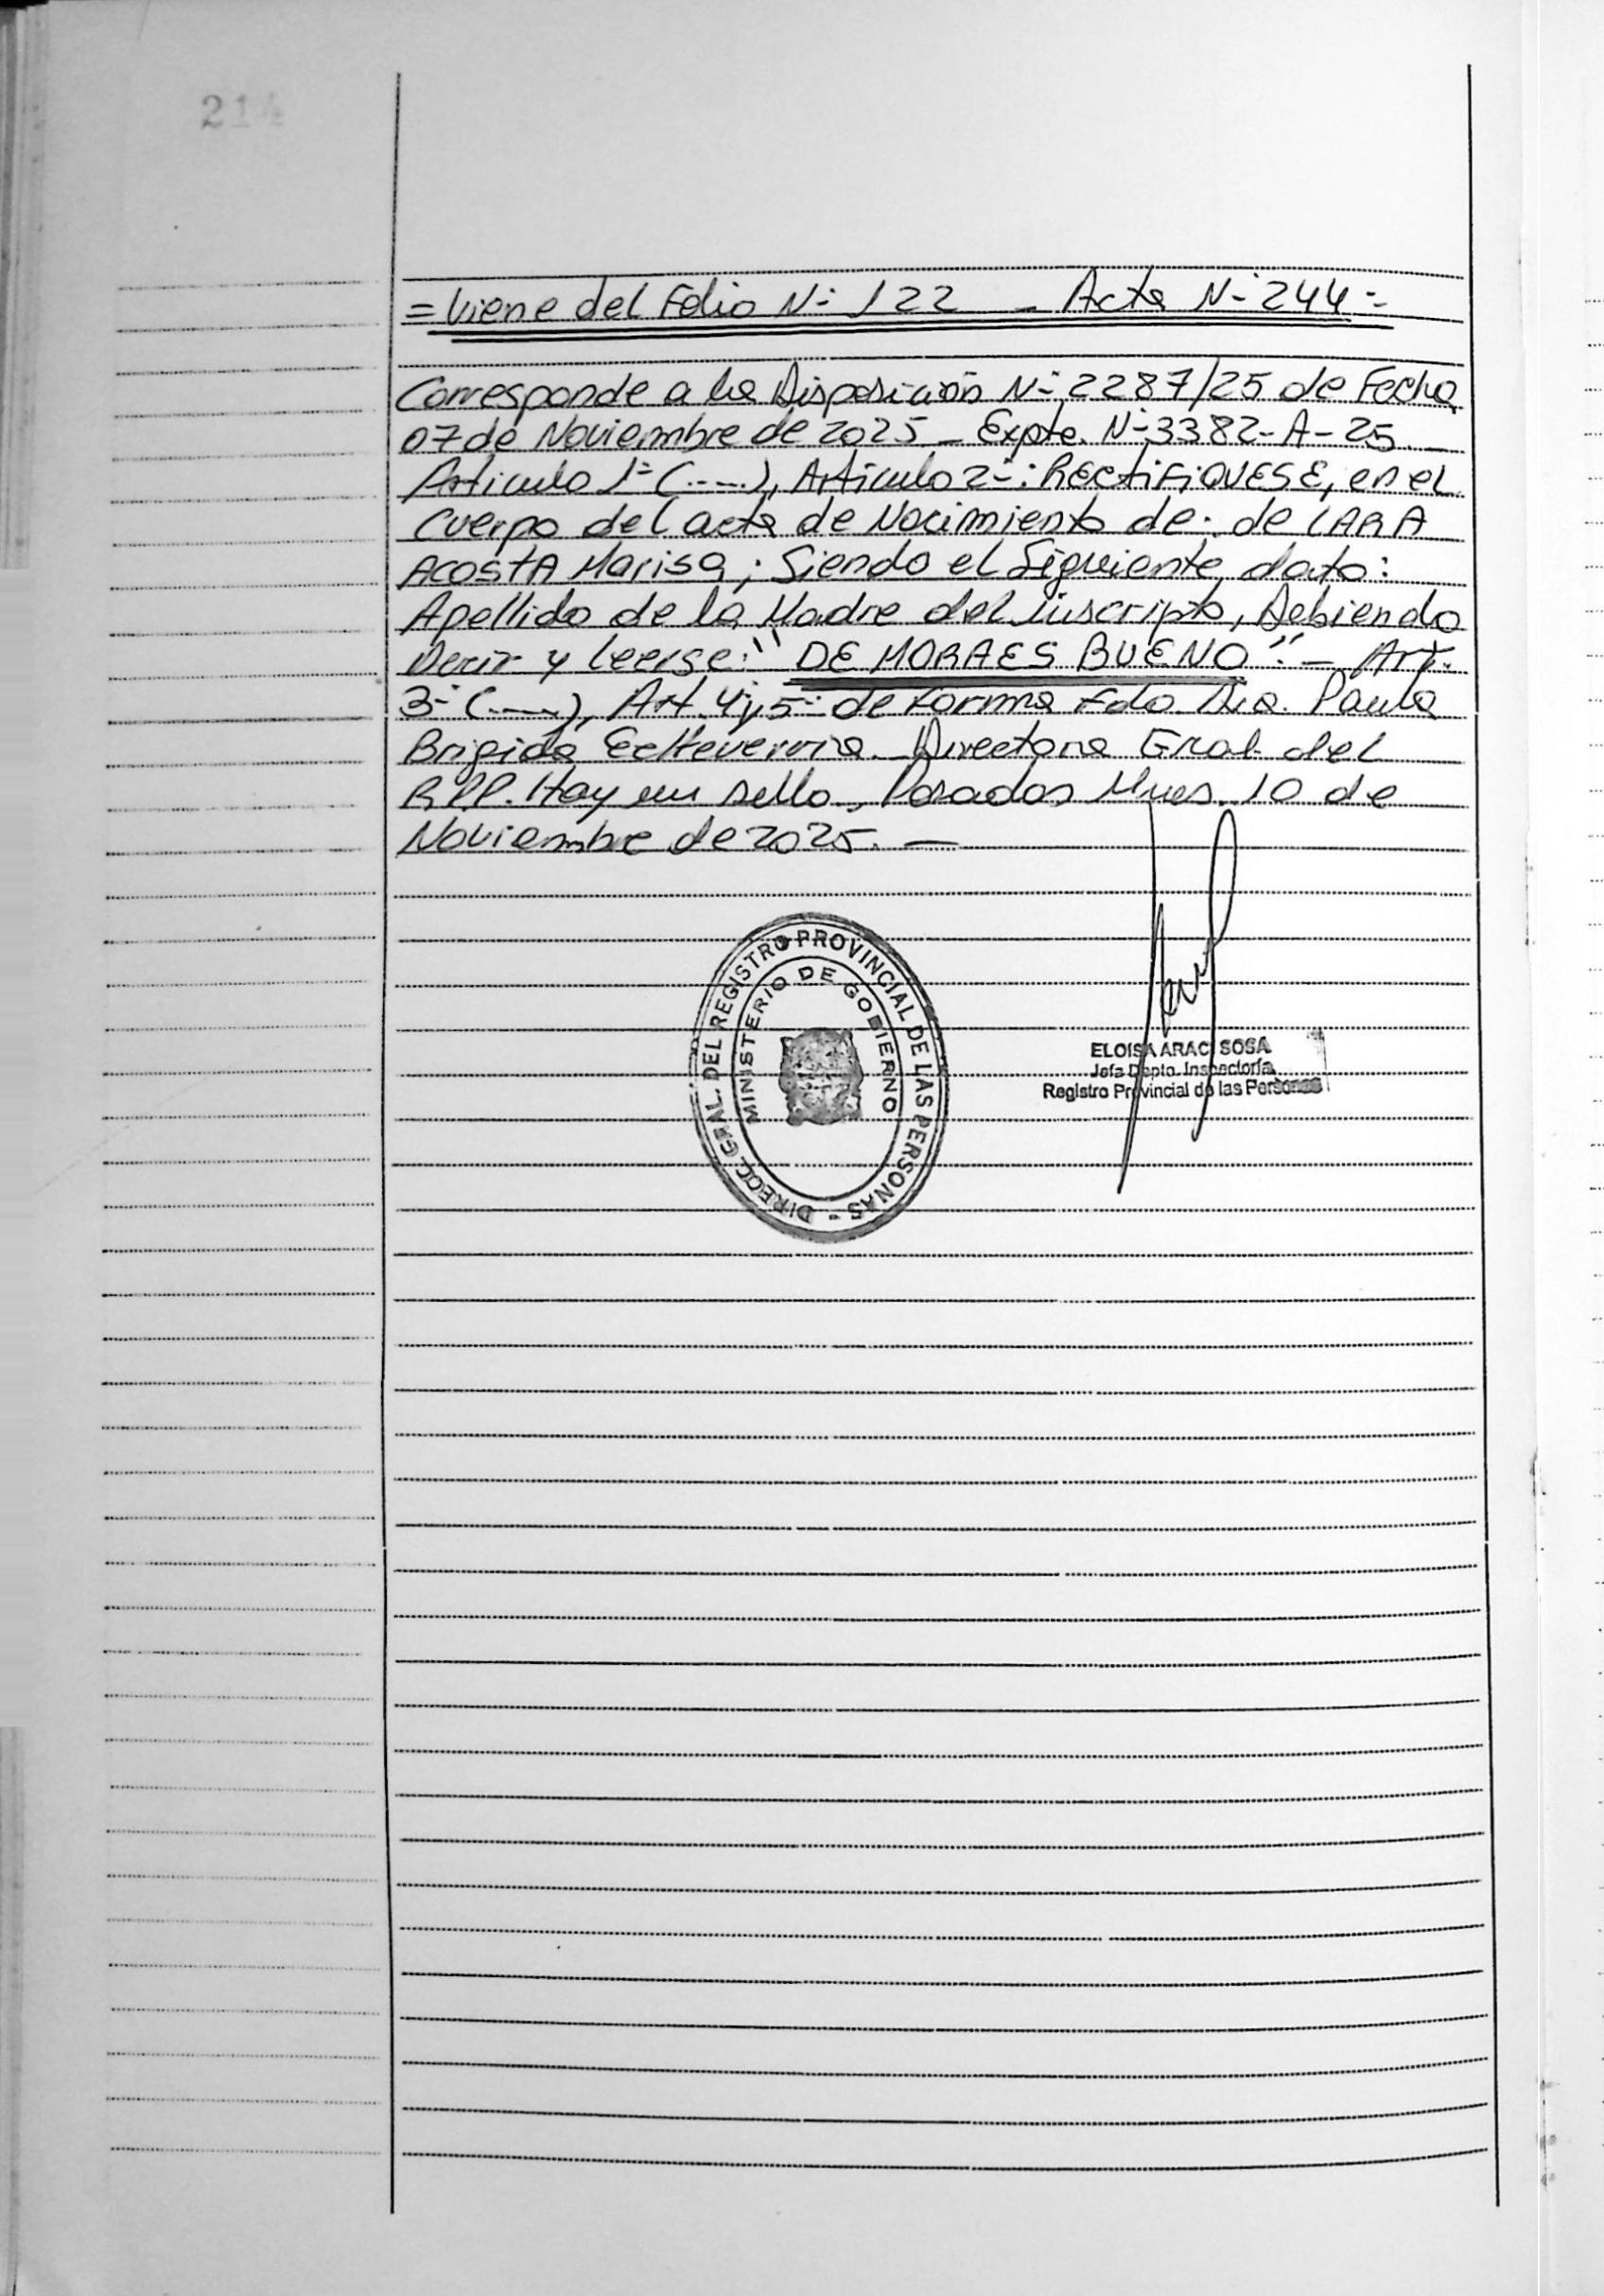 214
= Viene del Folio N- 122 - Acta N- 244 -
Corresponde a la Disposición N- 2287/25 de Fecha
07 de Noviembre de 2025 - Expte. N- 3382-A-25.
Articulo 1- (.---.), Articulo 2-: RECTIFIQUESE, en el
Cuerpo del acta de Nacimiento de: de LARA
ACOSTA Marisa; Siendo el Siguiente dato:
Apellido de la Madre del inscripto, Debiendo
Decir y Leerse: "DE MORAES BUENO". - Art.
3- (.---.), Art. 4y5- de Forma Fdo Dra. Paula
Brigida Echeverria. Directora Gral del
RPP. Hay un sello. Posadas Mnes. 10 de
Noviembre de 2025. —
DIRECC. GRAL. DEL REGISTRO PROVINCIAL DE LAS PERSONAS -
MINISTERIO DE GOBIERNO
ELOISA ARACI SOSA
Jefa Depto. Inspectoría
Registro Provincial de las Personas